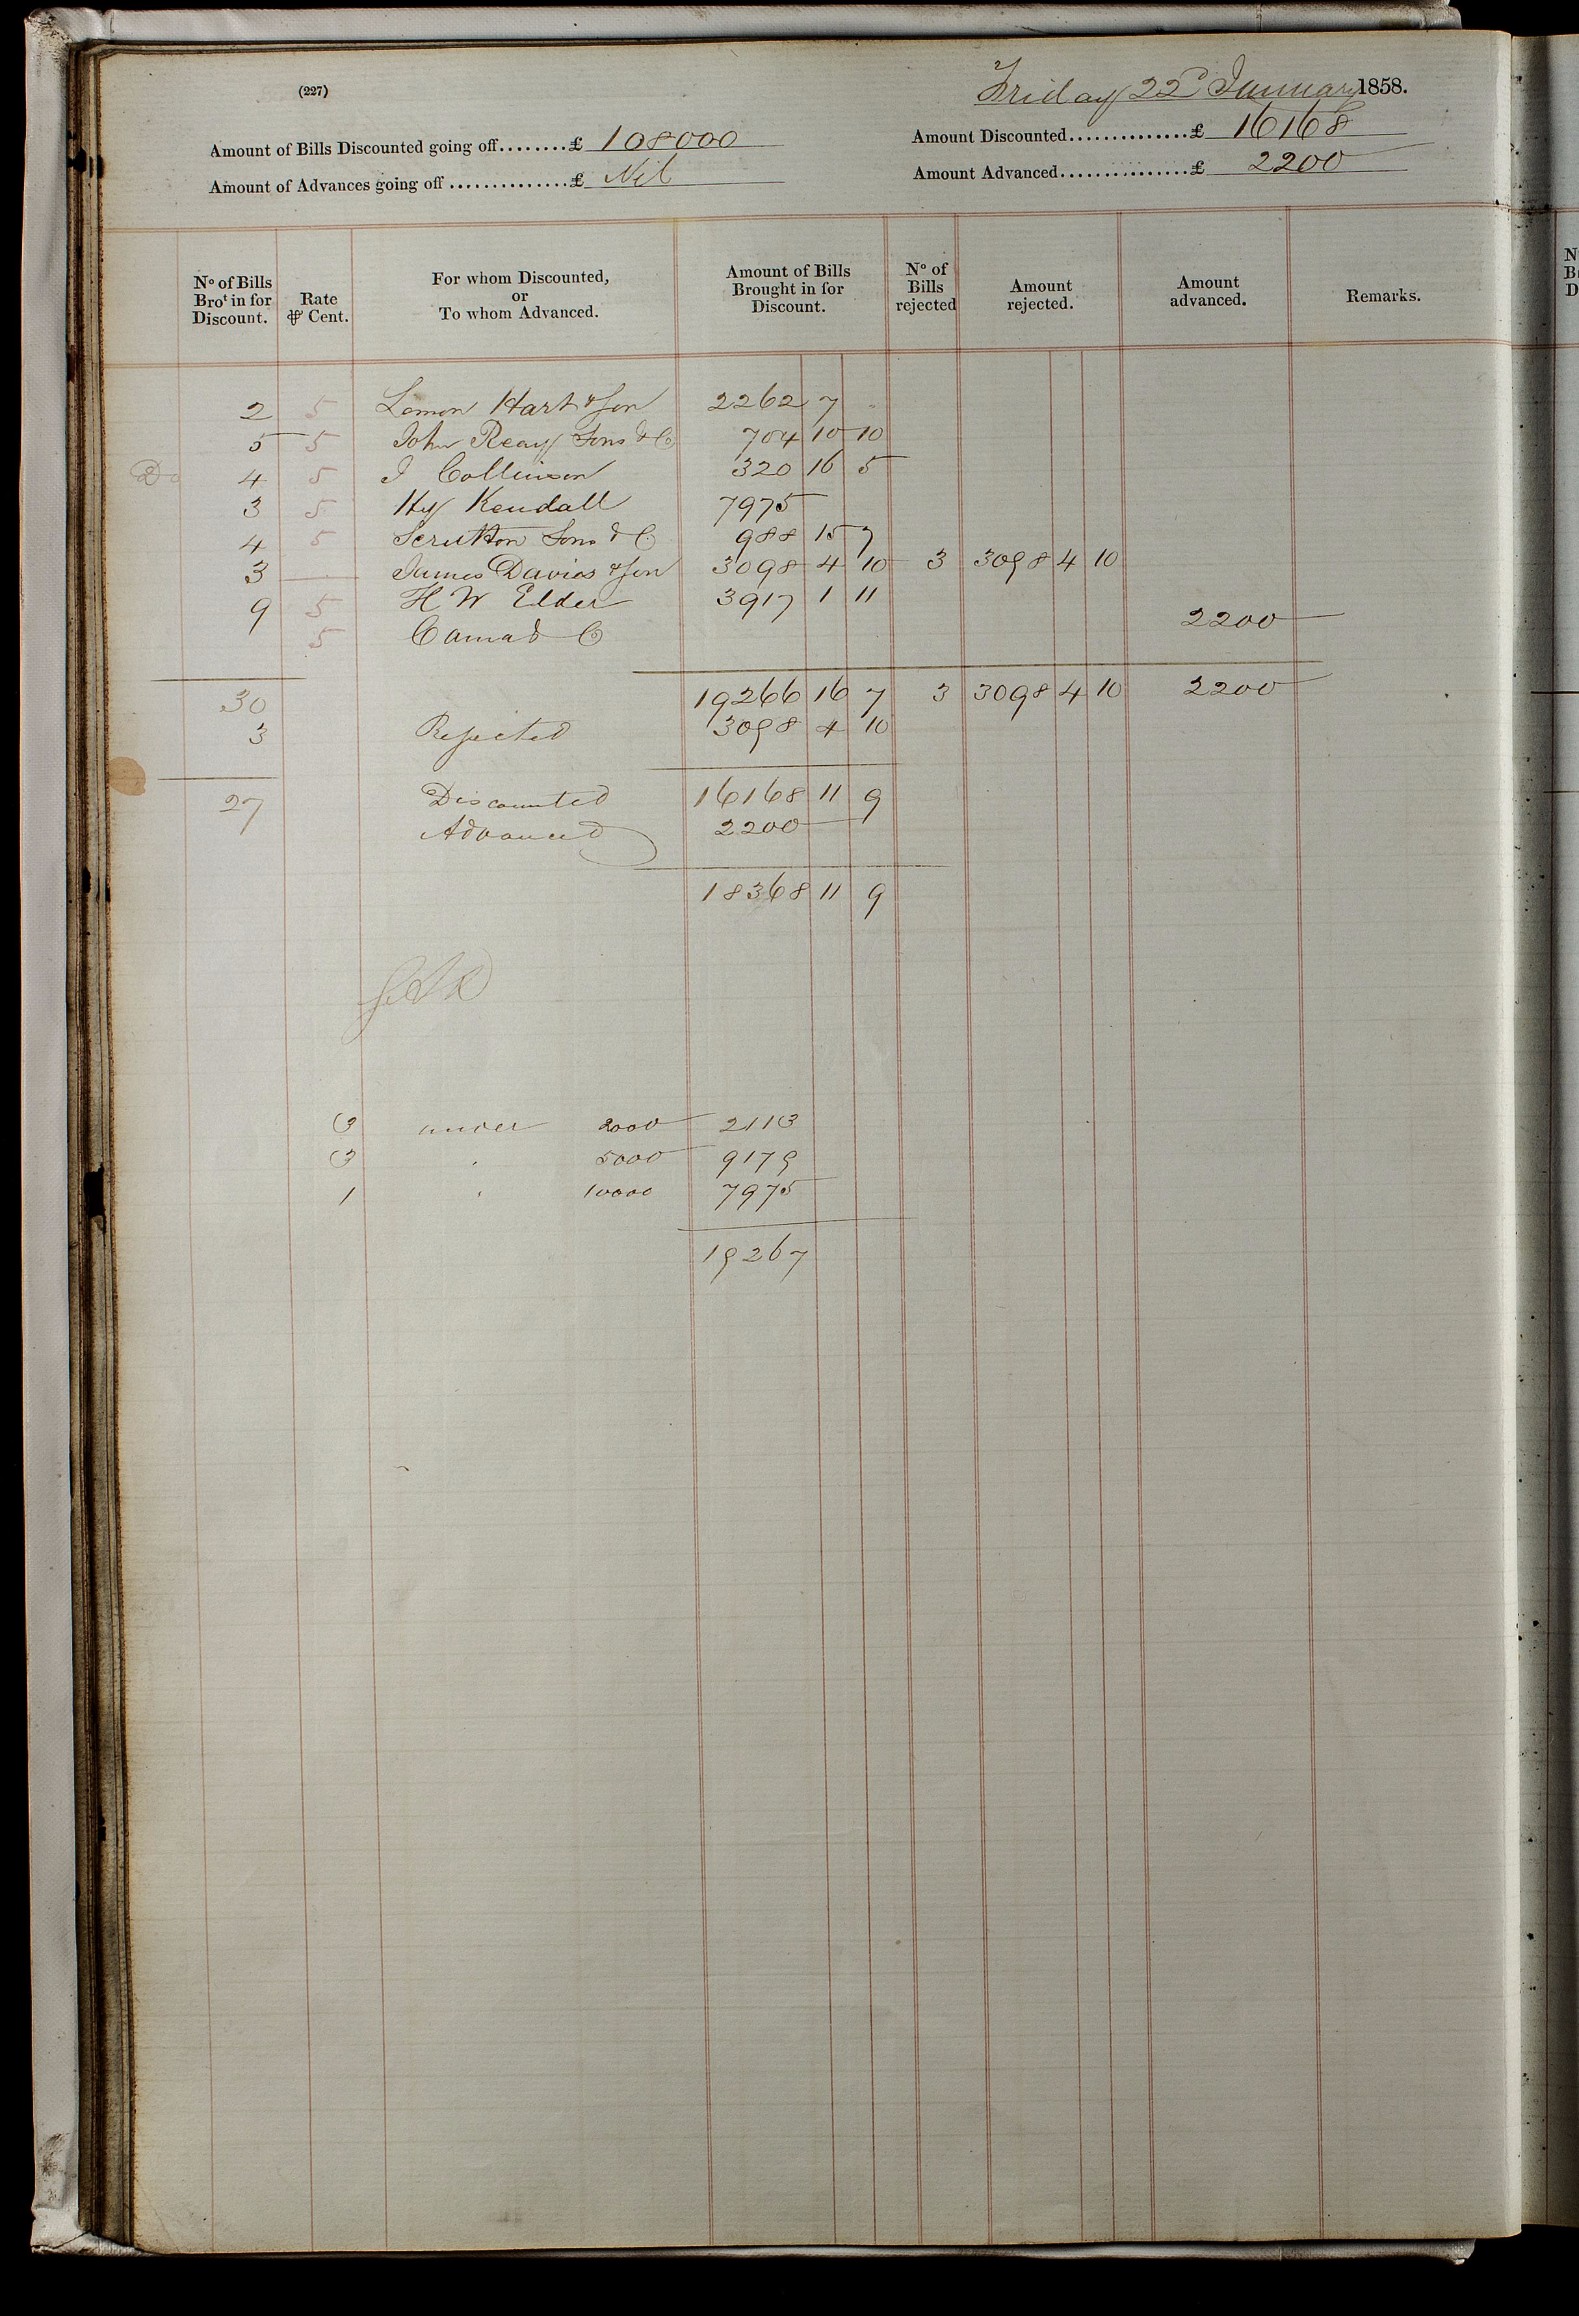 (227)
Friday 22d January 1858.
Amount of Bills Discounted going off........£ 108000
Amount Discounted..............£ 16168
Amount of Advances going off..............£ Nil
Amount Advanced...............£ 2200
No of Bills Brot in for Discount. Rate ⅌ Cent. For whom Discounted, or To whom Advanced. Amount of Bills Brought in for Discount. No of Bills rejected Amount rejected. Amount advanced. Remarks.
2 5 Lemon Hart & Son 2262 7 -
5 5 John Reay Sons & Co 704 10 10
Do 4 5 J Collinson 320 16 5
3 5 Hy Kendall 7975
4 5 Scrutton Sons & Co 988 15 7
3 — James Davies & Son 3098 4 10 3 3098 4 10
9 5 H W Elder 3917 1 11
5 Cama & Co 2200
30 19266 16 7 3 3098 4 10 2200
3 Rejected 3098 4 10
27 Discounted 16168 11 9
Advanced 2200
18368 11 9
3 under 2000 2113
3 " 5000 9179
1 " 10000 7975
19267